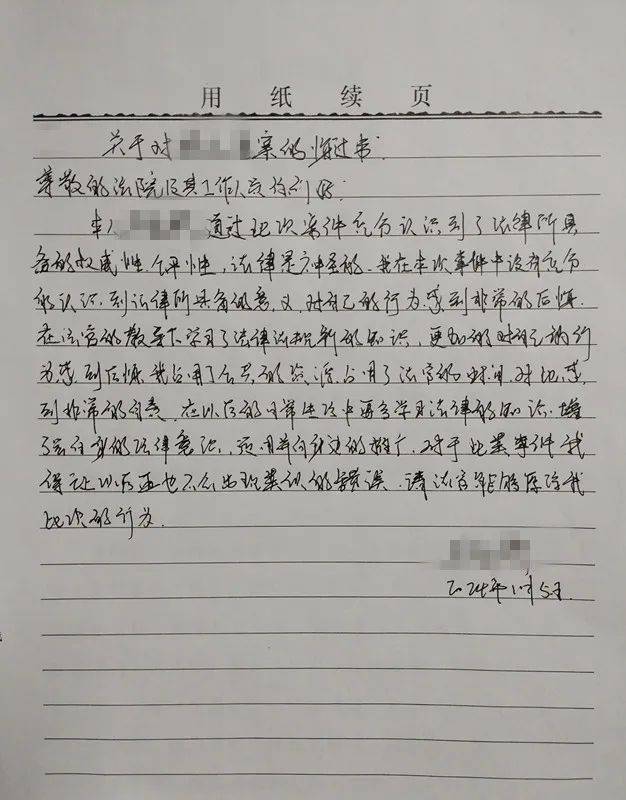 用 纸 续 页
关于对 案的悔过书
尊敬的法院及其工作人员 好：
本人 通过此次案件充分认识到了法律所具
备的权威性、公平性，法律是神圣的。我在本次事件中没有充分
的认识到法律所具备的意义，对自己的行为感到非常的后悔。
在法官的教导下学习了法律法规 的知识，更加的对自己的行
为感到后悔。我占用了公共的资源，占用了法官的时间，对此感
到非常的自责，在以后的日常生活中要多学习法律的知识，增
强自身的法律意识， 并向身边的推广，对于此类事件我
保证以后再也不会出现类似的错误，请法官 能原谅我
此次的行为。
2024年1月5日